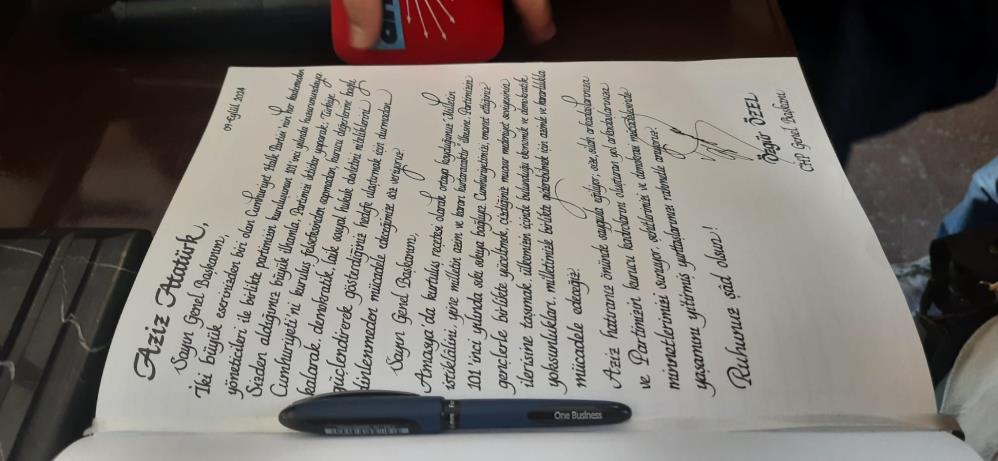 09 Eylül 2024
Aziz Atatürk,
Sayın Genel Başkanım,
İki büyük eserinizden biri olan Cumhuriyet Halk Partisi'nin her kademeden
yöneticileri ile birlikte partimizin kuruluşunun 101'inci yılında huzurunuzdayız.
Sizden aldığımız büyük ilhamla, Partimizi iktidar yaparak; Türkiye
Cumhuriyeti'ni kuruluş felsefesinden sapmadan, kurucu değerlerine bağlı
kalarak, demokratik, laik, sosyal hukuk devletini niteliklerini
güçlendirerek gösterdiğiniz hedefe ulaştırmak için durmadan,
dinlenmeden mücadele edeceğimize söz veriyoruz.
Sayın Genel Başkanım,
Amasya'da kurtuluş reçetesi olarak ortaya koyduğunuz "Milletin
istiklâlini, yine milletin azim ve kararı kurtaracaktır" ilkesine, Partimizin
101'inci yılında sıkı sıkıya bağlıyız. Cumhuriyetimizi, emanet ettiğiniz
gençlerle birlikte yüceltmek, çizdiğiniz muasır medeniyet seviyesinin
ilerisine taşımak, ülkemizin içinde bulunduğu ekonomik ve demokratik
yoksunlukları, milletimizle birlikte giderebilmek için azimle ve kararlılıkla
mücadele edeceğiz.
Aziz hatıranız önünde saygıyla eğiliyor; size, silah arkadaşlarınıza
ve Partimizin kurucu kadrolarını oluşturan yol arkadaşlarınıza
minnetlerimizi sunuyor, şehitlerimizi ve demokrasi mücadelesinde
yaşamını yitirmiş yurttaşlarımızı rahmetle anıyoruz.
Ruhunuz şâd olsun!
Özgür ÖZEL
CHP Genel Başkanı
One Business